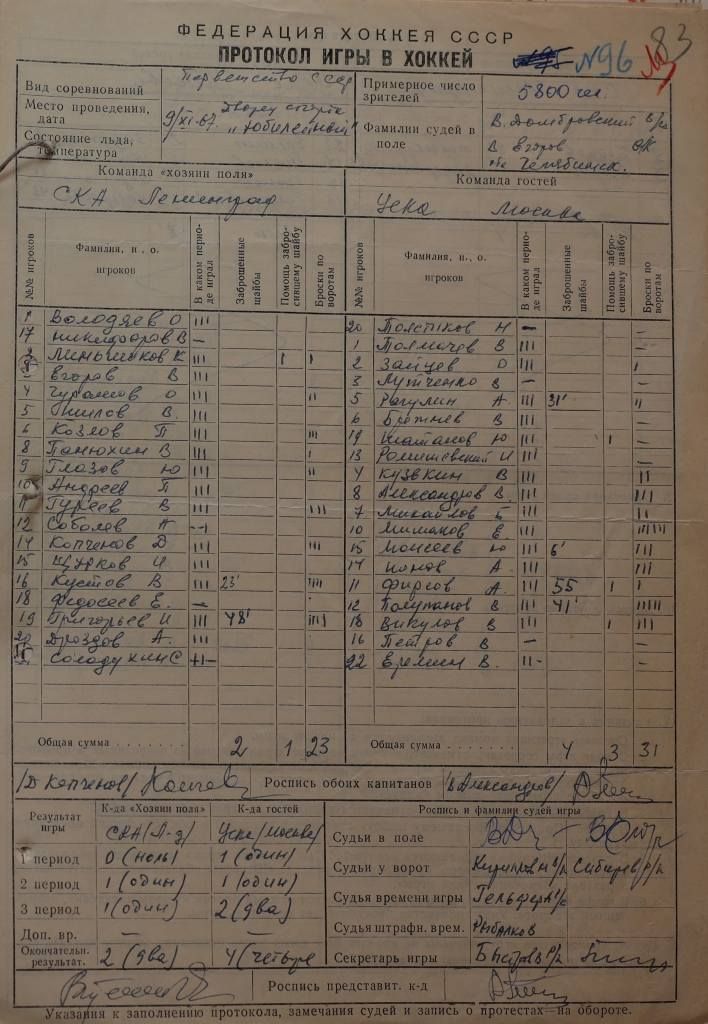 ФЕДЕРАЦИЯ ХОККЕЯ СССР
ПРОТОКОЛ ИГРЫ В ХОККЕЙ
N96
83
Вид соревнований
Первенство СССР
Место проведения, дата
9/XI-67. Дворец спорта "Юбилейный"
Состояние льда, температура
Примерное число зрителей
5800 чел.
Фамилии судей в поле
В. Домбровский в/к
В Егоров
Челябинск.
Команда «хозяин поля»
СКА Ленинград
Команда гостей
ЦСКА Москва
№№ игроков Фамилия, и., о. игроков В каком периоде играл Заброшенные шайбы Помощь забросившему шайбу Броски по воротам
1 Володяев О III
17 Никифоров В –
Меньшиков К III I I
Егоров В III
4 Чурашов О III II
5 Шилов В. III
6 Козлов П III III
8 Панюхин В III
9 Глазов Ю III II
10 Андреев П III
11 Гуреев В III IIII
12 Соболев А
14 Копченов Д III III
15 И III
16 Кустов В III 23' IIII
18 Федосеев Е. –
19 Григорьев И III 48' IIII
20 Дроздов А. III
Солодухин С
Общая сумма . . . . . . . 2 1 23
№№ игроков Фамилия, и., о. игроков В каком периоде играл Заброшенные шайбы Помощь забросившему шайбу Броски по воротам
20 Толстиков Н – –
1 Толмачев В III –
2 Зайцев О III I
3 Лутченко В – –
5 Рагулин А. III 31' II
6 Брежнев В III –
19 Шаталов Ю III I –
13 Ромишевский И III –
4 Кузькин В III II
8 Александров В. III III
7 Михайлов Б III II
10 Мишаков Е. III IIIIII
15 Моисеев Ю III 6' III
14 Ионов А. III III
11 Фирсов А. III 55 I I
12 Полупанов В III 41' IIIII
18 Викулов В III I III
16 Петров В – –
22 Еремин В. II- –
Общая сумма . . . . . . . 4 3 31
/Д Копченов/
Роспись обоих капитанов
/В Александров/
Результат игры
К-да «Хозяин поля»
СКА (Л-д)
К-да гостей
ЦСКА (Москва)
1 период 0 (ноль) 1 (один)
2 период 1 (один) 1 (один)
3 период 1 (один) 2 (два)
Доп. вр. – –
Окончательн. результат. 2 (два) 4 (четыре
Роспись и фамилии судей игры
Судьи в поле
Судьи у ворот Кириллов Сибирев
Судья времени игры Гельфер
Судья штрафн. врем. Рыбаков
Секретарь игры Быстров
Роспись представит. к-д
Указания к заполнению протокола, замечания судей и запись о протестах—на обороте.